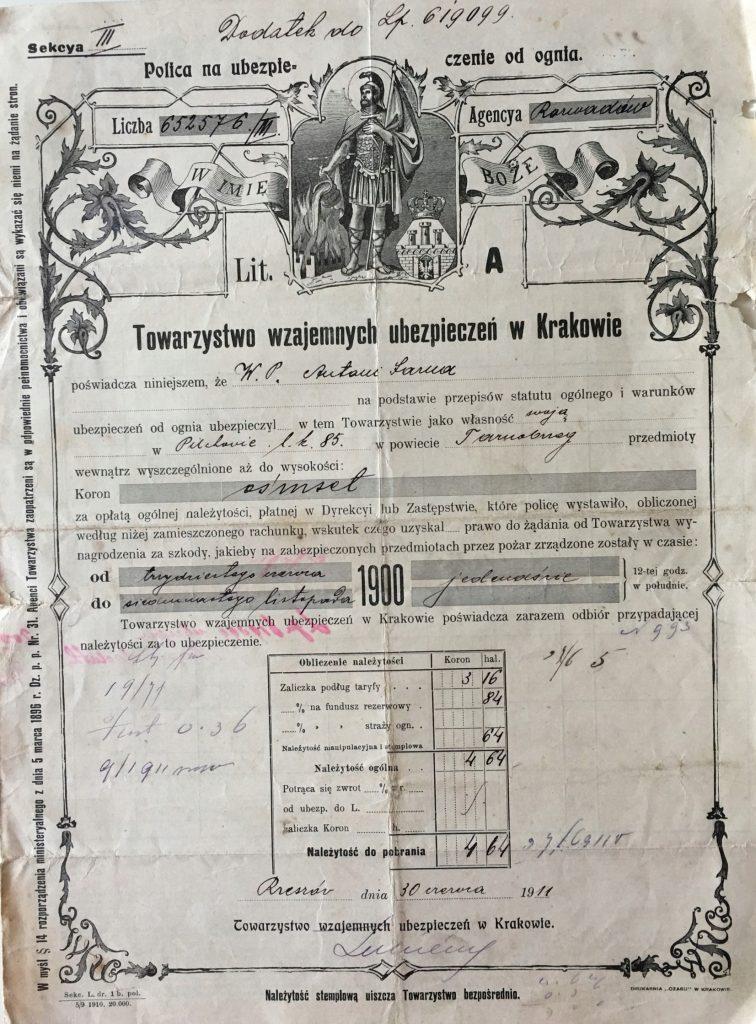 Dodatek do Lp. 619099.
Sekcya III
Polica na ubezpie- czenie od ognia.
Liczba 652576/III
Agencya Rozwadów
W IMIĘ BOŻE
Lit. A
Towarzystwo wzajemnych ubezpieczeń w Krakowie
poświadcza niniejszem, że W. P. Antoni Sarna
na podstawie przepisów statutu ogólnego i warunków
ubezpieczeń od ognia ubezpieczył w tem Towarzystwie jako własność swoją
w l. k. 85. w powiecie Tarnobrzeg przedmioty
wewnątrz wyszczególnione aż do wysokości:
Koron ośmset
za opłatą ogólnej należytości, płatnej w Dyrekcyi lub Zastępstwie, które policę wystawiło, obliczonej
według niżej zamieszczonego rachunku, wskutek czego uzyskał prawo do żądania od Towarzystwa wy-
nagrodzenia za szkody, jakieby na zabezpieczonych przedmiotach przez pożar zrządzone zostały w czasie:
od trzydziestego czerwca
1900 jedenaście
12-tej godz. w południe.
do listopada
Towarzystwo wzajemnych ubezpieczeń w Krakowie poświadcza zarazem odbiór przypadającej
należytości za to ubezpieczenie.
N 993
19/71
0.36
9/1911
5
Obliczenie należytości Koron hal.
Zaliczka podług taryfy . . . 3 16
% na fundusz rezerwowy . 84
% " " straży ogn. .
Należytość manipulacyjna i stemplowa 64
Należytość ogólna . . 4 64
Potrąca się zwrot % z r.
od ubezp. do L.
zaliczka Koron h.
Należytość do pobrania 4 64
Rzeszów dnia 30 czerwca 1911
Towarzystwo wzajemnych ubezpieczeń w Krakowie.
Sekc. I. dr. 1 b. pol.
5/9 1910. 20.000.
Należytość stemplową uiszcza Towarzystwo bezpośrednio.
DRUKARNIA „CZASU" W KRAKOWIE.
W myśl § 14 rozporządzenia ministeryalnego z dnia 5 marca 1896 r. Dz. p. p. Nr. 31. Agenci Towarzystwa zaopatrzeni są w odpowiednie pełnomocnictwa i obowiązani są wykazać się niemi na żądanie stron.